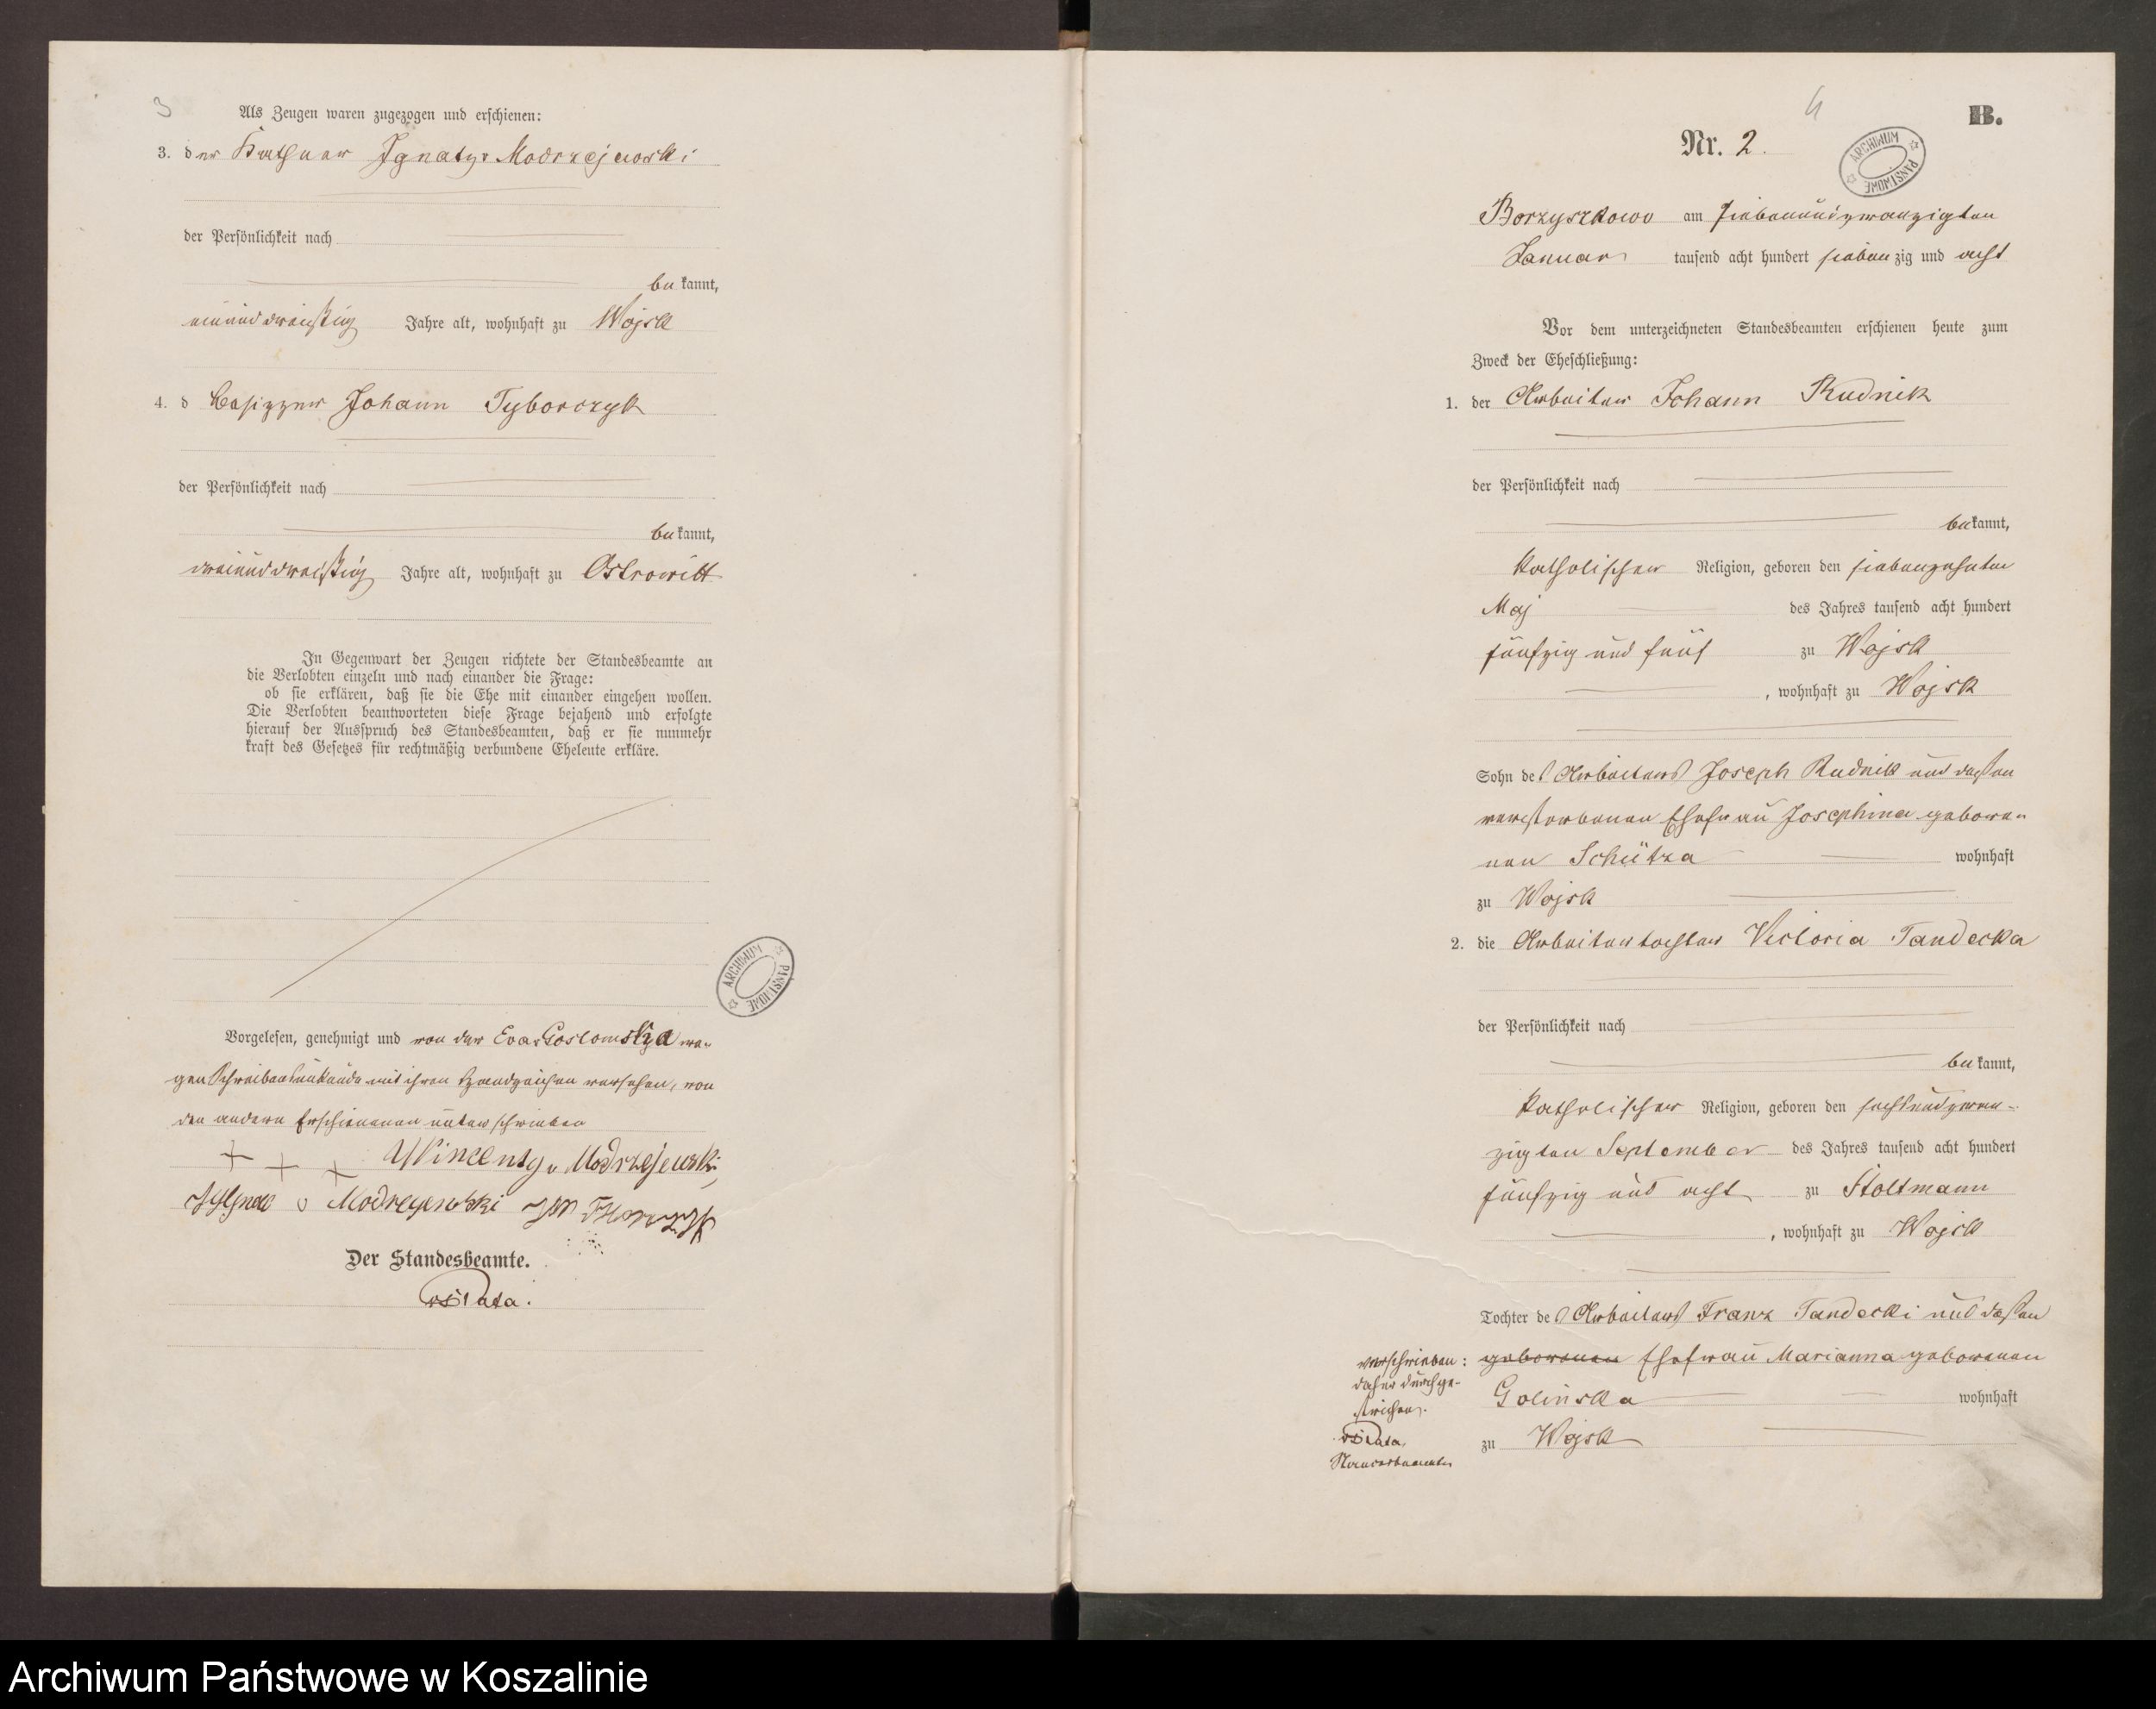 3
Als Zeugen waren zugezogen und erschienen:
3. der Käthner Ignatz v Modrzejewski
der Persönlichkeit nach
be kannt,
einunddreißig Jahre alt, wohnhaft zu Wojsk
4. d Besitzer Johann Tyborczyk
der Persönlichkeit nach
be kannt,
dreiunddreißig Jahre alt, wohnhaft zu Ostrowitt
In Gegenwart der Zeugen richtete der Standesbeamte an
die Verlobten einzeln und nach einander die Frage:
ob sie erklären, daß sie die Ehe mit einander eingehen wollen.
Die Verlobten beantworteten diese Frage bejahend und erfolgte
hierauf der Ausspruch des Standesbeamten, daß er sie nunmehr
kraft des Gesetzes für rechtmäßig verbundene Eheleute erkläre.
ARCHIWUM PAŃSTWOWE
Vorgelesen, genehmigt und von der Eva v Gostomska we-
gen Schreibensunkunde mit ihren Handzeichen versehen, von
den andern Erschienenen unterschrieben
+ + + Wincenty v Modrzejewski,
v Modrzejewski
Der Standesbeamte.
4
B.
Nr. 2.
ARCHIWUM PAŃSTWOWE
Borzyszkowo am siebenundzwanzigten
Januar tausend acht hundert siebenzig und acht
Vor dem unterzeichneten Standesbeamten erschienen heute zum
Zweck der Eheschließung:
1. der Arbeiter Johann Rudnik
der Persönlichkeit nach
bekannt,
katholischer Religion, geboren den siebenzehnten
Maj des Jahres tausend acht hundert
fünfzig und fünf zu Wojsk
, wohnhaft zu Wojsk
Sohn des Arbeiters Joseph Rudnik und dessen
verstorbenen Ehefrau Josephina gebore-
nen Schütza wohnhaft
zu Wojsk
2. die Arbeitertochter Victoria Tandecka
der Persönlichkeit nach
be kannt,
katholischer Religion, geboren den sechsundzwan-
zigten September des Jahres tausend acht hundert
fünfzig und acht zu Stoltmann
, wohnhaft zu Wojsk
Tochter des Arbeiters Franz Tandecki und dessen
geborenen Ehefrau Marianna geborenen
Golinska wohnhaft
zu Wojsk
verschrieben:
daher durchge-
strichen.
Standesbeamter
Archiwum Państwowe w Koszalinie